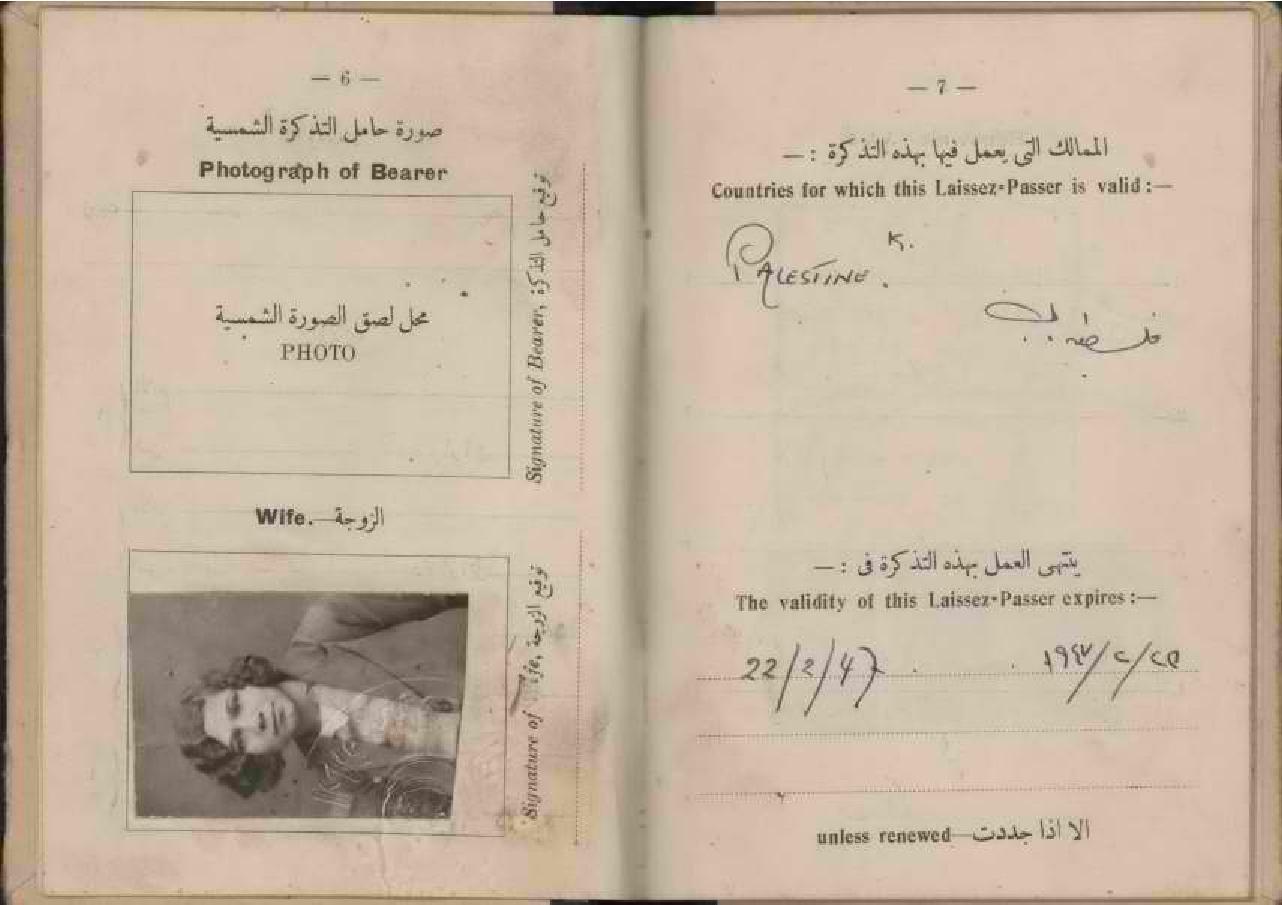 — 6 —
صورة حامل التذكرة الشمسية
Photograph of Bearer
محل لصق الصورة الشمسية
PHOTO
توقيع حامل التذكرة
Signature of Bearer,
Wife.—الزوجة
توقيع الزوجة
Signature of
— 7 —
الممالك التى يعمل فيها بهذه التذكرة : —
Countries for which this Laissez-Passer is valid :—
K.
PALESTINE.
فلسطين
ينتهى العمل بهذه التذكرة فى : —
The validity of this Laissez-Passer expires :—
22/2/47
unless renewed—الا اذا جددت